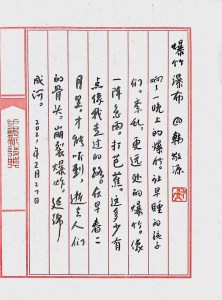 爆竹瀑布 @韩敬源
响了一晚上的爆竹。让早睡的孩子
们。紊乱。更远处的爆竹。像
一阵急雨。打芭蕉。这多少有
点像我走过的路。在早春二
月里。才能听到。逝去人们
的骨头。崩裂爆炸。延绵
成河。2021年2月27日